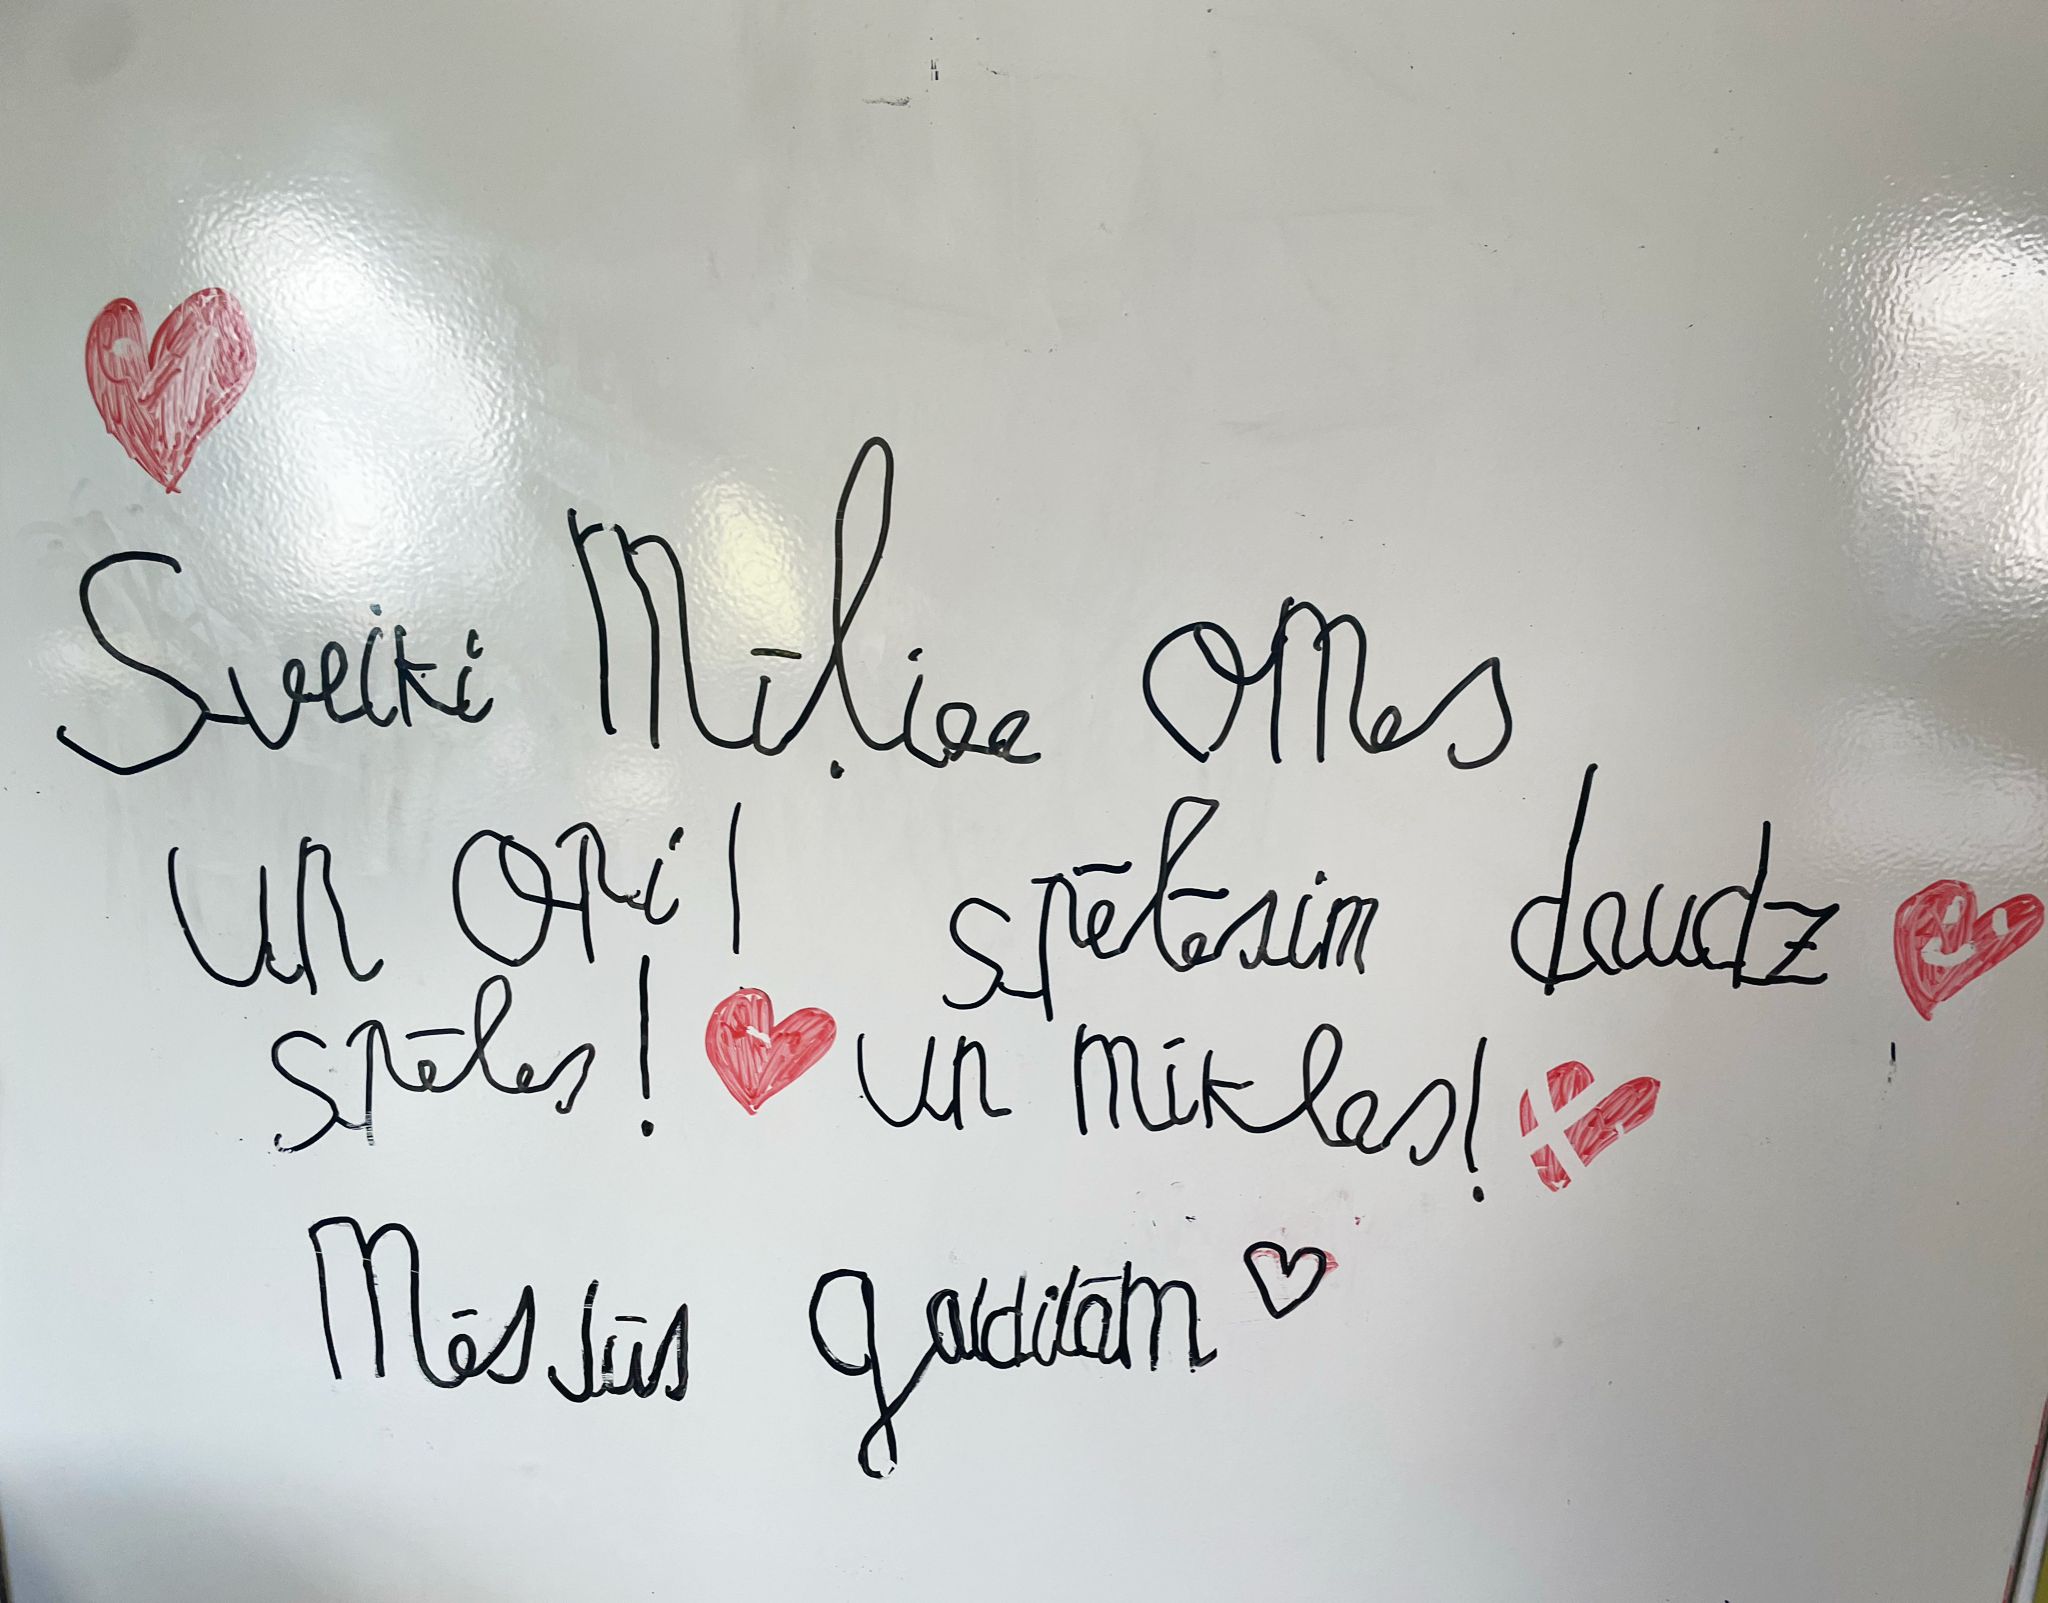 Sveiki Mīļiee omes
un opi! spēlēsim daudz
spēles! un mīklas!
Mēs Jūs gaidīlām